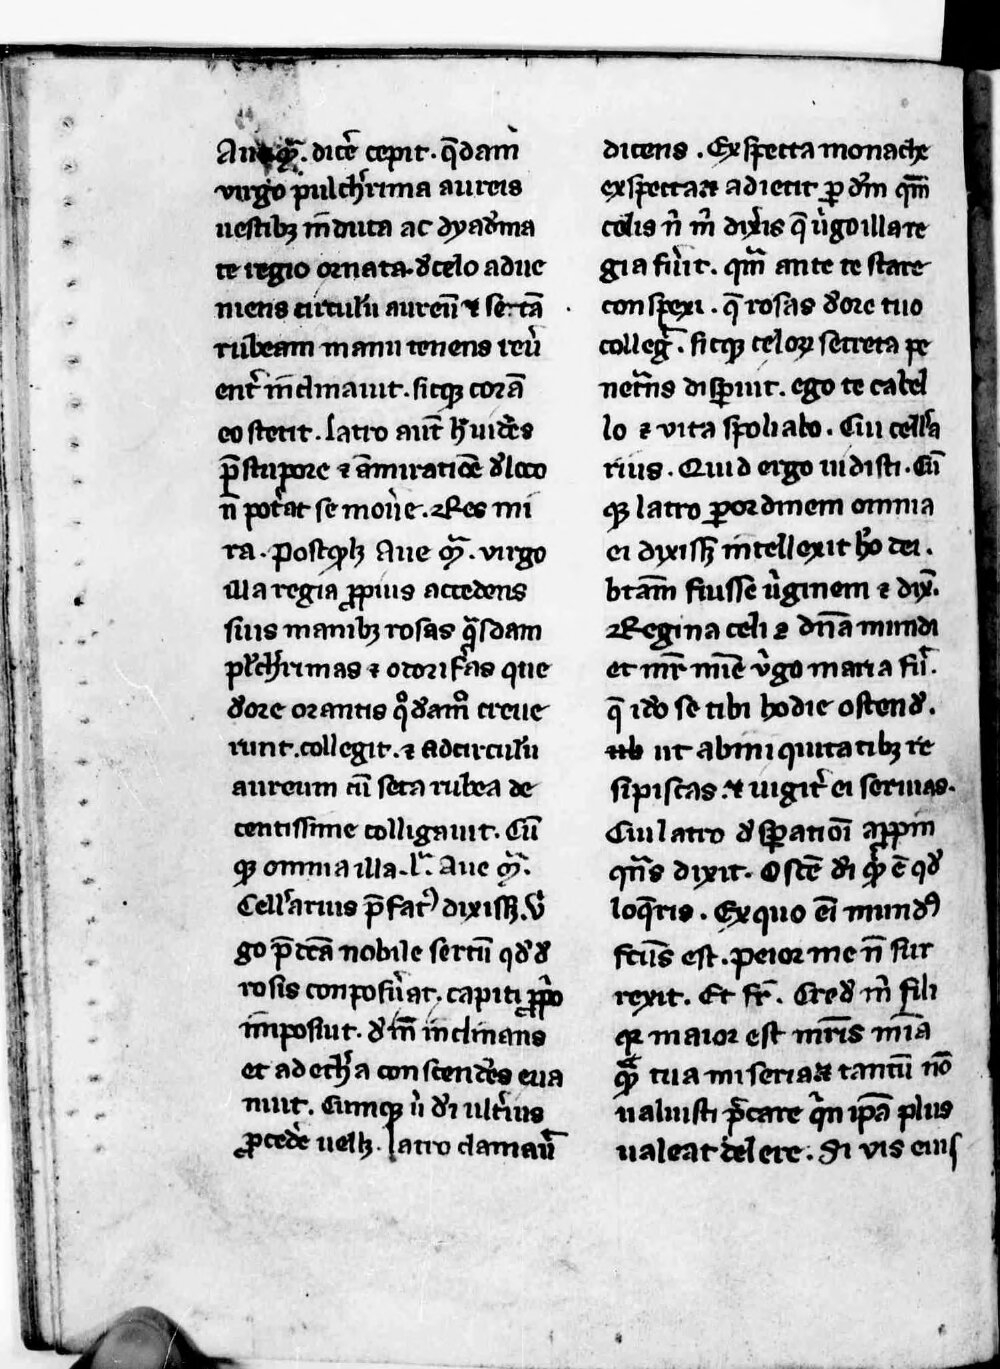 Aue mͣ. dicē cepit. q̄dam
virgo pulch̓rima aureis
uestibꝫ īnduta ac dyad̓ma
te regio ornata. d̓ celo adue
niens circulū aureū ⁊ sertā
rubeam manu tenens reu̓
ent̓ inclinauit. sicqꝫ corā
eo stetit. latro aut̄ h̓ uid̓es
p̄ stupore ⁊ āmiratiōe d̓ loco
n̄ pot̓at se mou̓e. Res mi
ra. postqꝫ Aue mͣ. virgo
illa regia ꝓpius accedens
suis manibꝫ rosas qͣsdam
pl̓ch̓rimas ⁊ odorif̓as que
d̓ ore orantis qͦdam̊ creue
runt. collegit. ⁊ ad circulū
aureum cū seta rubea de
centissime colligauit. Cū
qꝫ omnia illa. l̓. Aue mͣ.
Cell̓arius p̄fat̓ dixissꝫ. v̓
go p̄dc̄a nobile sertū qd̓ d̓
rosis conposu̓at. capiti ꝓp̓o
imposuit. d̓īn inclinans
et ad eth̓a conscend̓es eua
nuit. Cumqꝫ u̓ d̓i ult̓ius
ꝓced̓e uellꝫ. latro clamau̓
dicens. Exspecta monache
exspecta ⁊ adiecit ꝑ d̄m qm̄
colis n̄ m̓ dix̓is q̄ u̓go illa re
gia fu̓it. qm̄ ante te stare
conspexi. q̄ rosas d̓ ore tuo
colleg̓. sicqꝫ celoꝝ secreta pe
net̓ns disꝑuit. ego te cabel
lo ⁊ vita spoliabo. Cui cell̓a
rius. Quid ergo uidisti. Cū
qꝫ latro ꝑ ordinem omnia
ei dixissꝫ intellexit hͦ dei.
btām fuisse u̓ginem ⁊ dix̄.
Regina celi ⁊ dn̄a mundi
et mr̄ mīe v̓go maria fu̓.
q̄ ido se tibi hodie ostend̓.
ut ab iniquitatibꝫ re
sipiscas. ⁊ uigit̓ ei seruias.
Cui latro d̓ sꝑationi aꝓpin
qn̄s dixit. Ostē d̓i qͣr ē qd̓
loq̄ris. Ex quo ei mundꝰ
fc̄us est. peior me n̄ sur
rexit. Et fr̄. Cred̓ m̓ fili
qꝛ maior est mr̄is mīa
qͣm tua miseria ⁊ tantū nō
ualuisti p̄care qͥn ipā plus
ualeat delere. Si vis eius